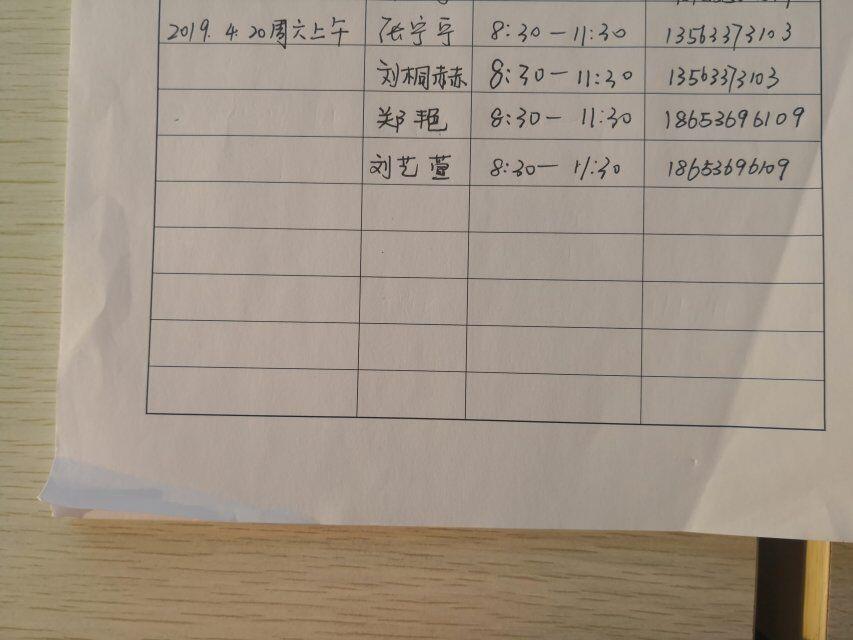 2019.4.20周六上午 张宁宁 8:30—11:30 13563373103
刘桐赫 8:30—11:30 13563373103
郑艳 8:30—11:30 18653696109
刘艺萱 8:30—11:30 18653696109